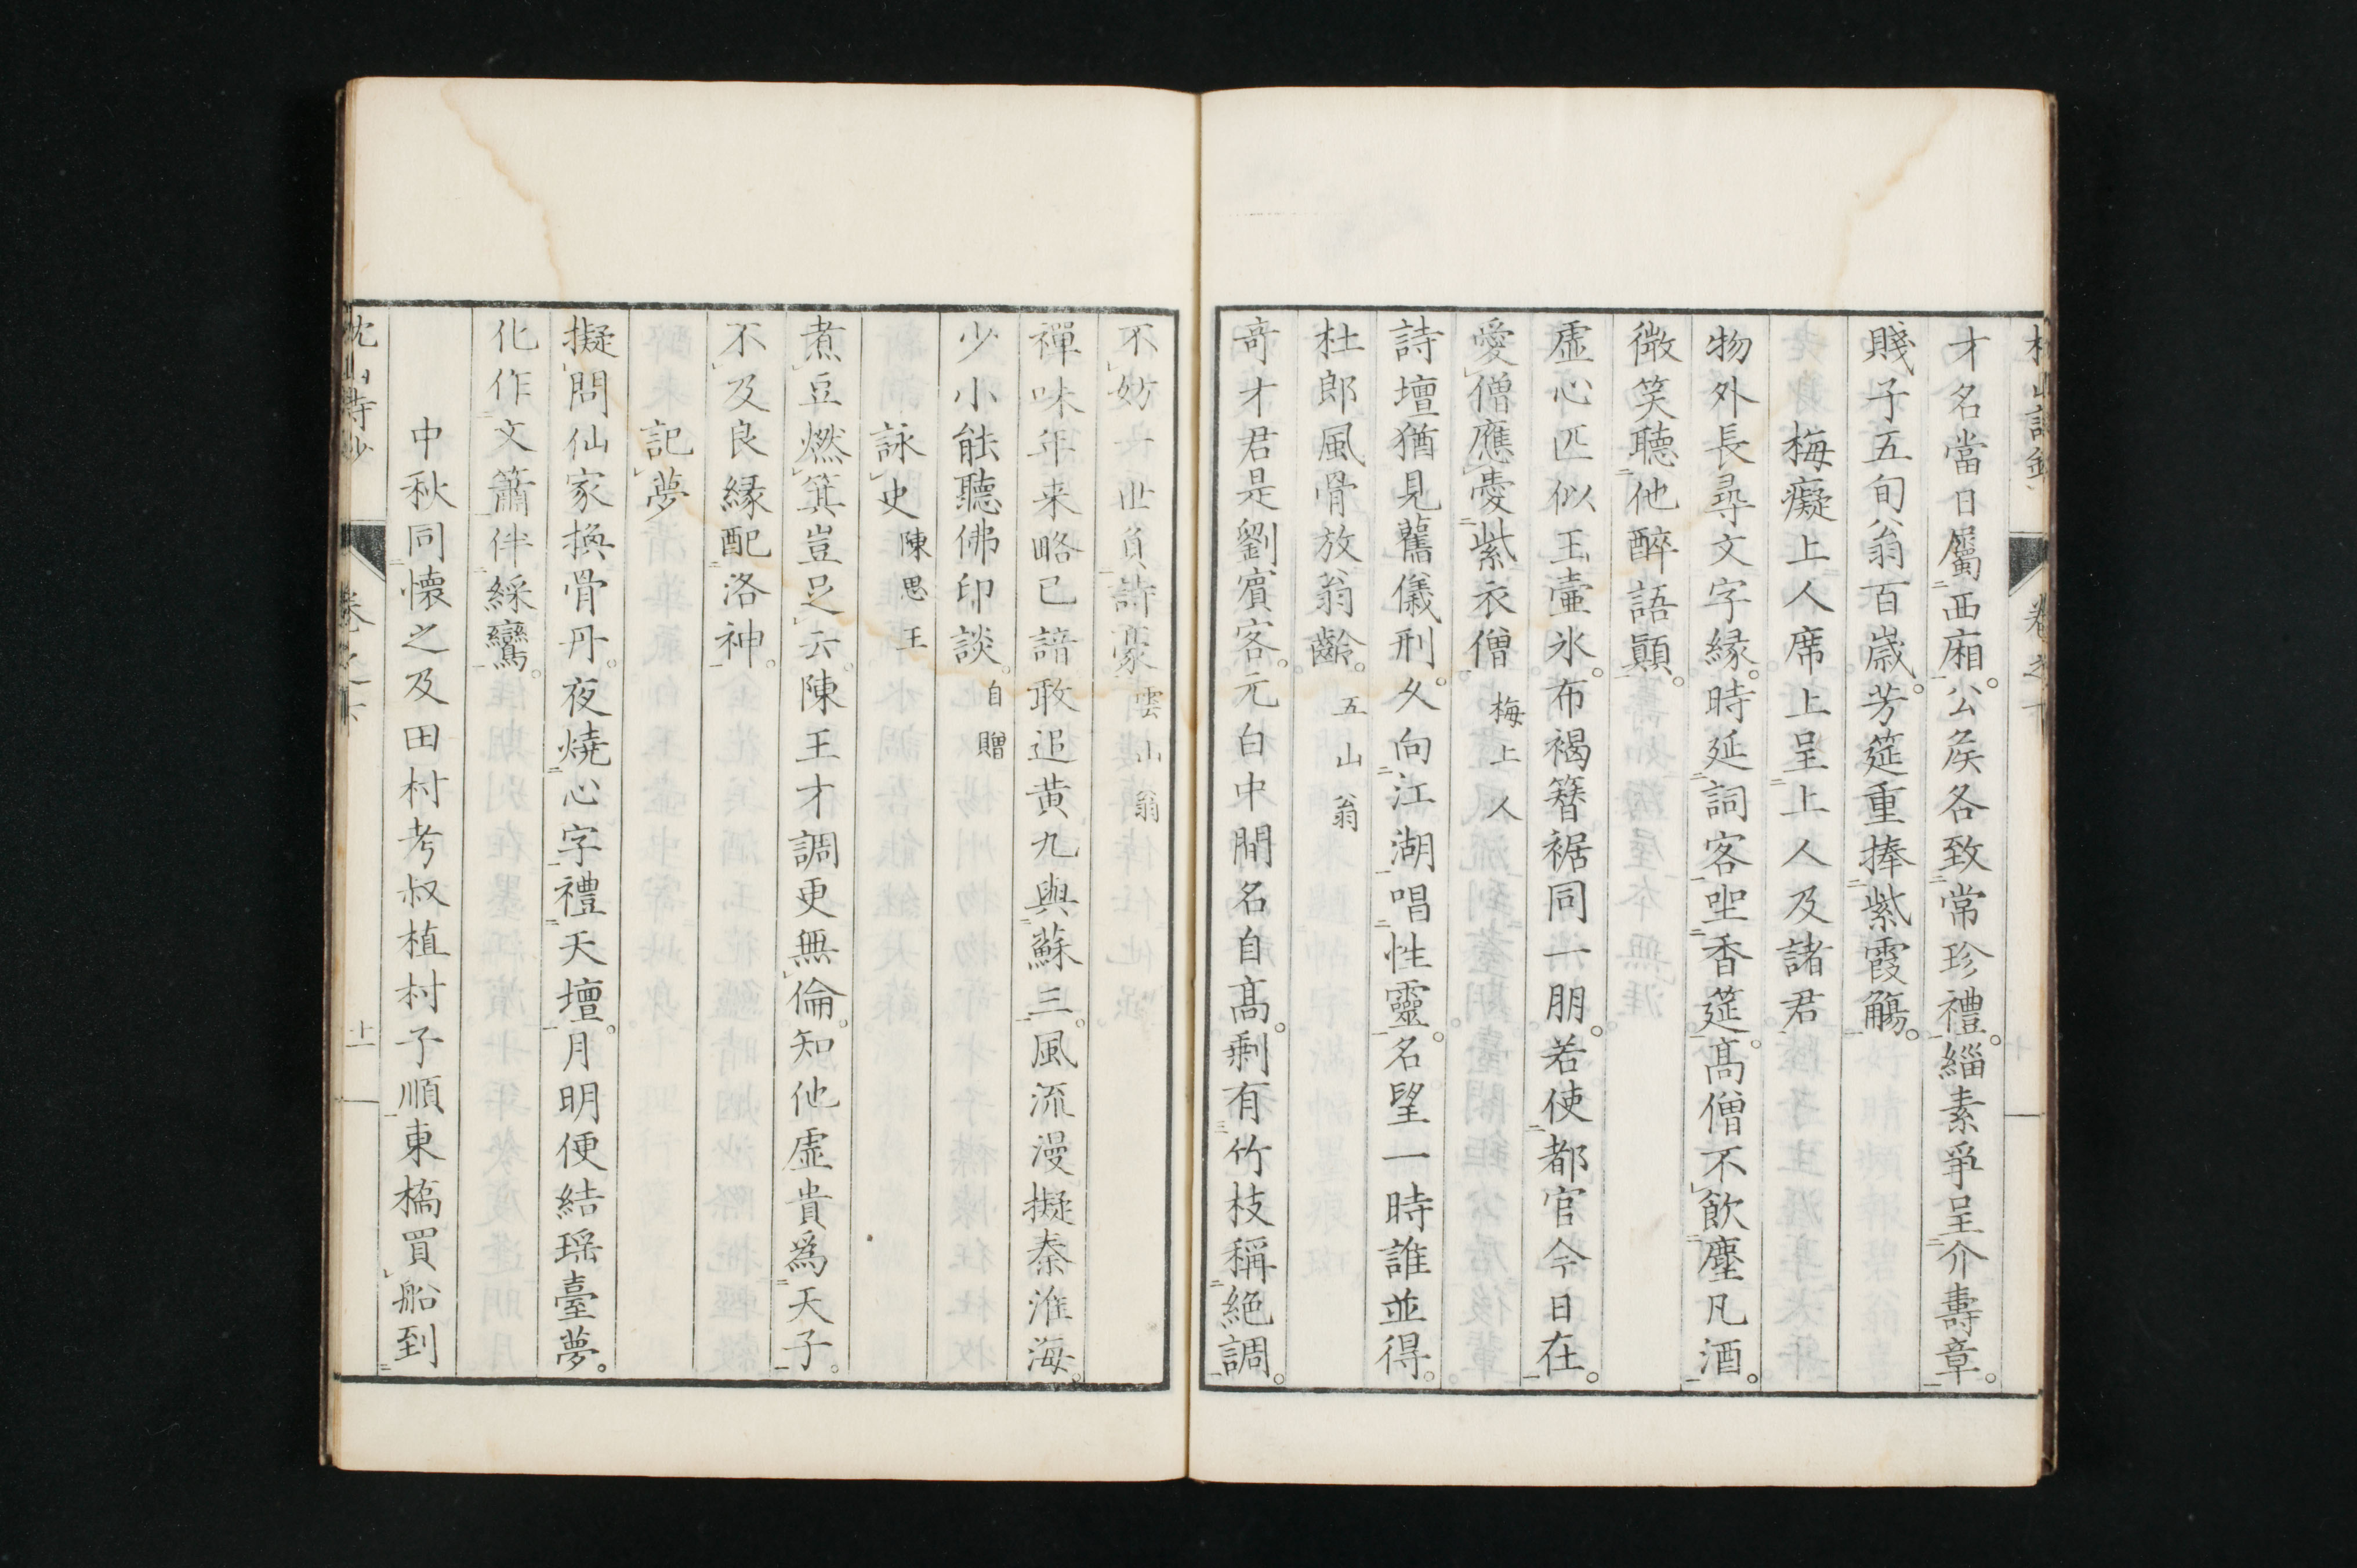 才名當日屬西廂。公矦各致常珍禮。緇素爭呈介壽章。
賤子五旬翁百歲。芳筵重捧紫霞觴。
梅癡上人席上呈上人及諸君
物外長尋文字緣。時延詞客坐香筵。高僧不飲塵凡酒。
微笑聽他醉語顛。
虛心匹似玉壷氷。布褐簪裾同一朋。若使都官今日在。
愛僧應愛紫衣僧 梅上人
詩壇猶見舊儀刑。久向江湖唱性靈。名望一時誰並得。
杜郎風骨放翁齡。 五山翁
竒才君是劉賓客。元白中間名自髙。剰有竹枝稱絶調。
不妨 世負詩豪 雲山翁
禪味年来略已諳敢追黄九與蘇三。風流漫擬秦淮海。
少小能聽佛印談。自贈
詠史 陳思王
煮豆燃萁豈足云。陳王才調更無倫。知他虛貴爲天子。
不及良緣配洛神。
記夢
擬問仙家換骨丹。夜燒心字禮天壇。月明便結瑶臺夢。
化作文簫伴綵鸞。
中秋同懷之及田村考叔植村子順東橋買船到
枕山詩鈔 卷之下 十一